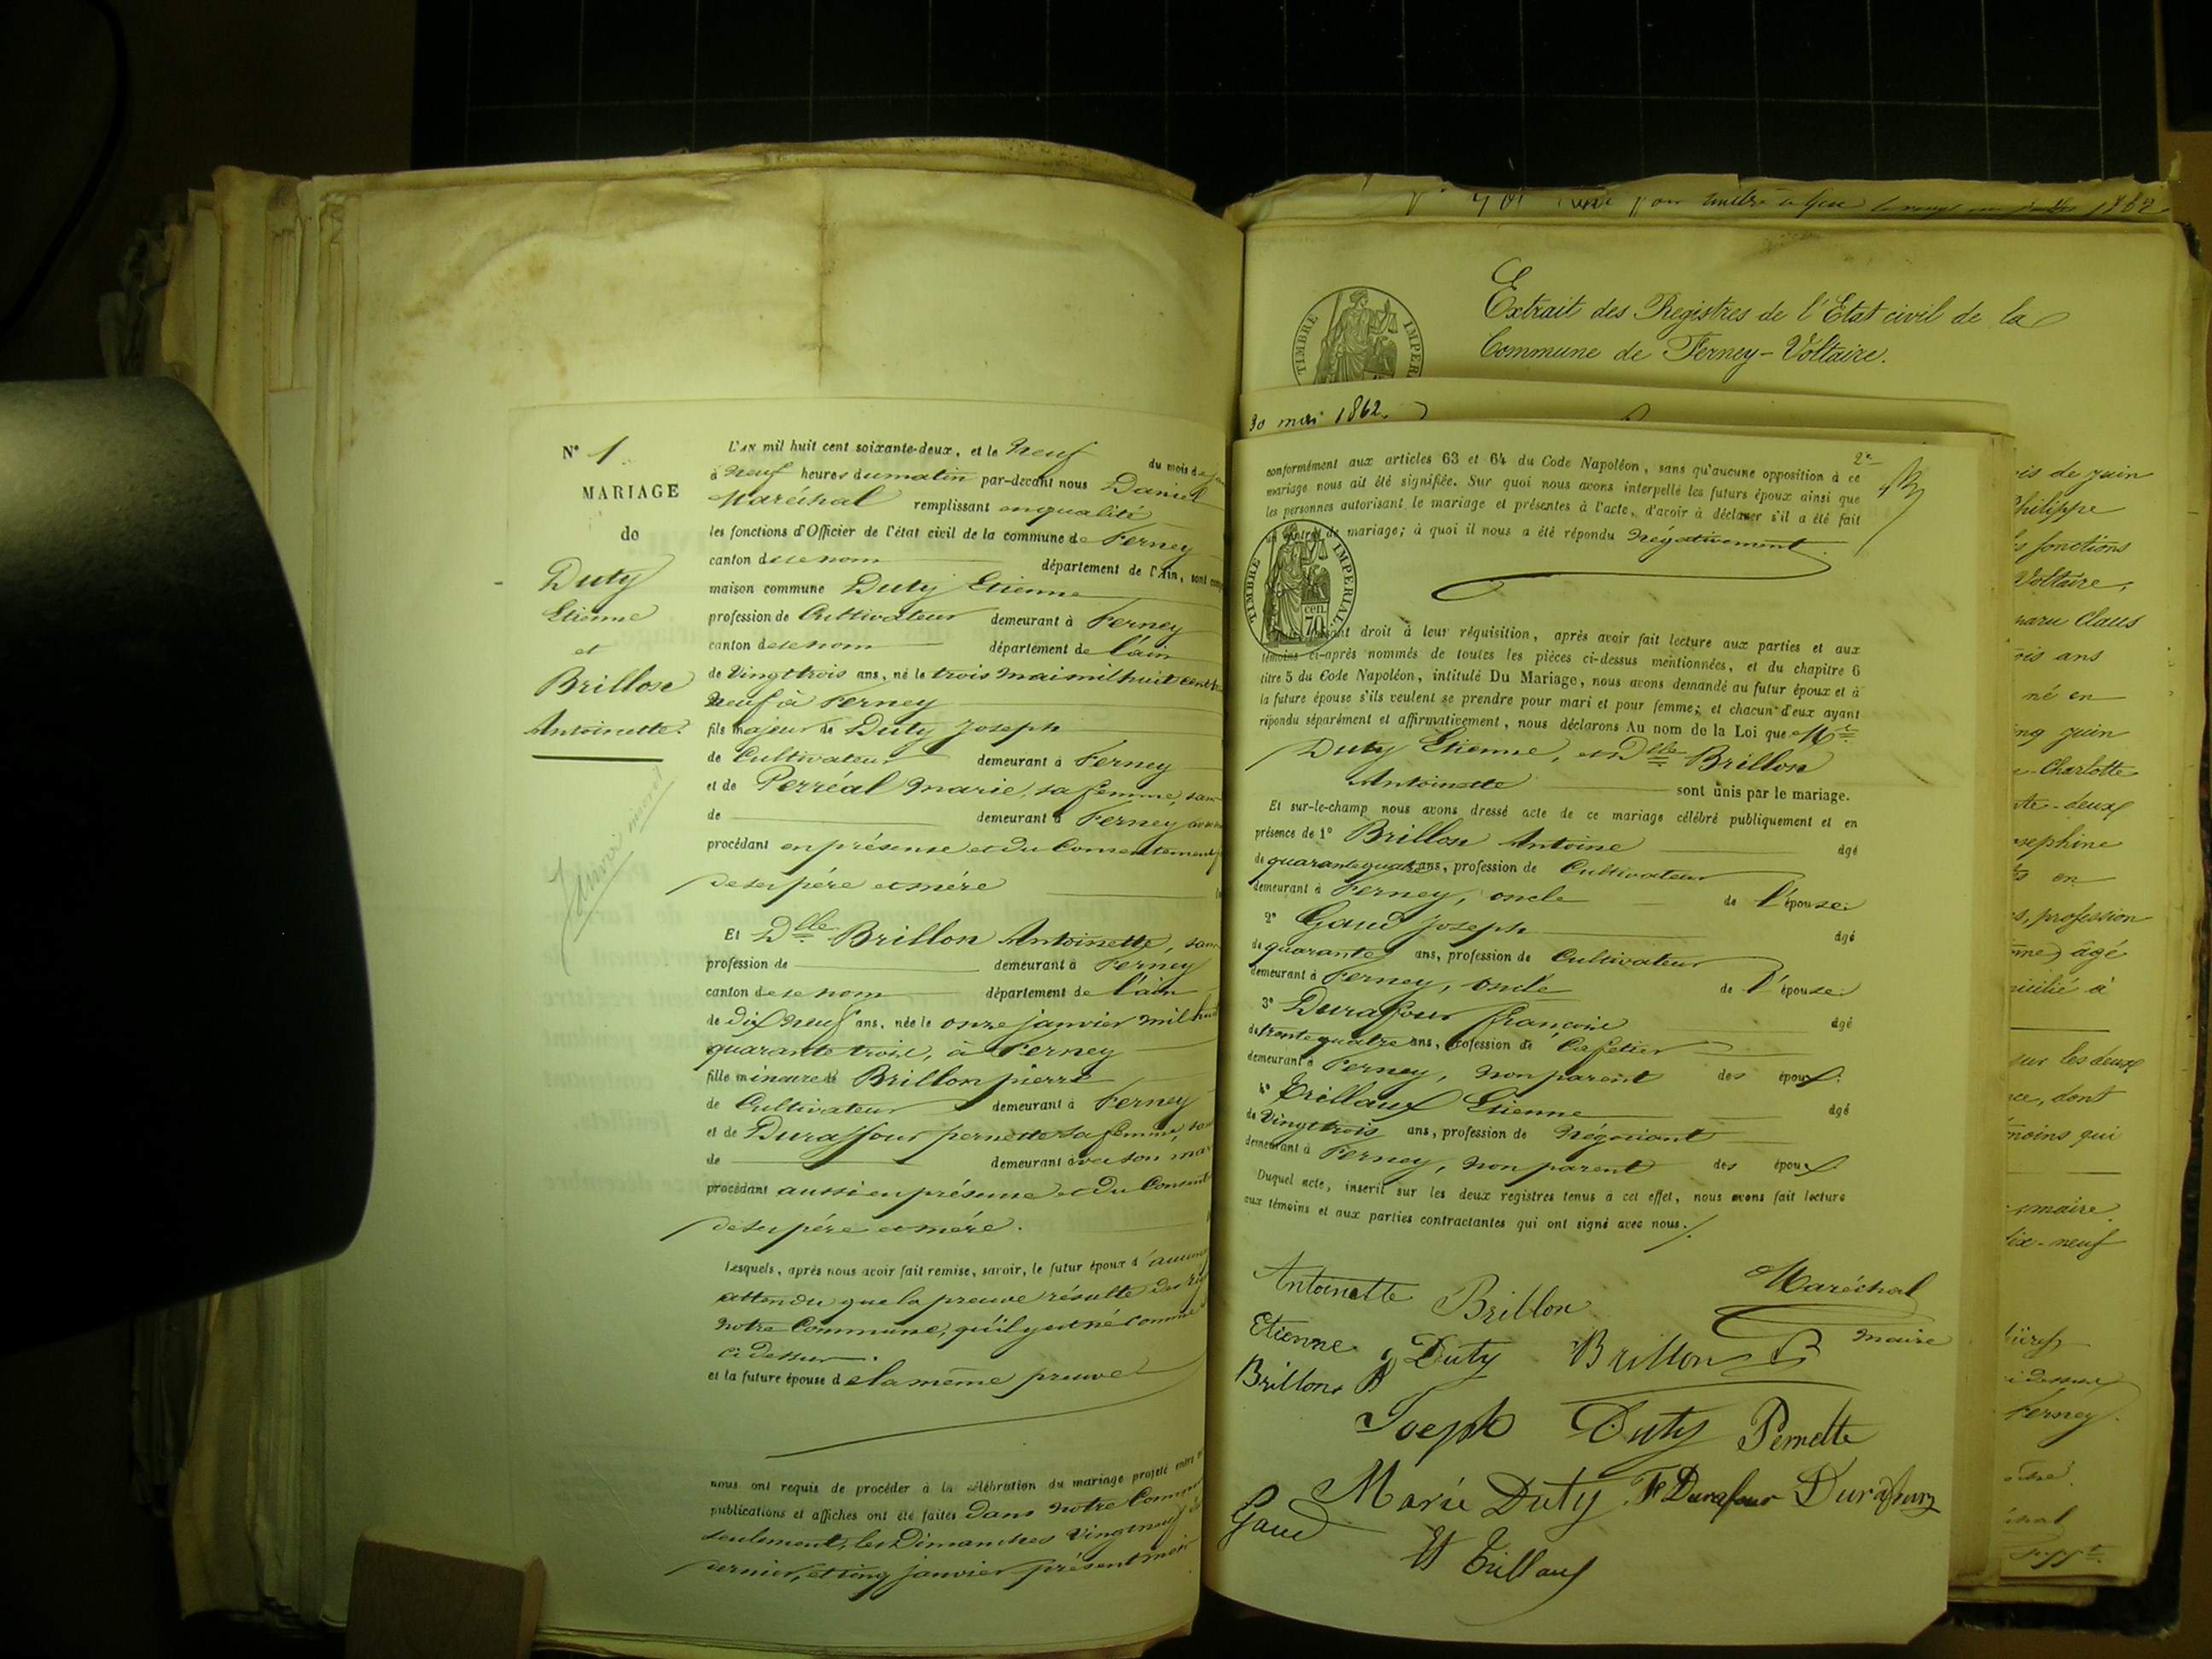 N° 1.
MARIAGE
de
Duty
Etienne
et
Brillon
Antoinette.
Janvier
L'AN mil huit cent soixante-deux, et le neuf du mois de
à neuf heures du matin par-devant nous Daniel
Maréchal remplissant en qualité
les fonctions d'Officier de l'état civil de la commune de Ferney
canton de ce nom département de l'Ain, sont
maison commune Duty Etienne
profession de Cultivateur demeurant à Ferney
canton de ce nom département de l'ain
de vingt trois ans, né le trois mai mil huit cent
neuf à Ferney
fils majeur de Duty Joseph
de Cultivateur demeurant à Ferney
et de Perréal Marie, sa femme, sans
de demeurant à Ferney
procédant en présence et du Consentement
de ses père et mère
Et Dlle Brillon Antoinette, sans
profession de demeurant à Ferney
canton de ce nom département de l'ain
de dix neuf ans, née le onze janvier mil huit
quarante trois, à Ferney
fille mineure de Brillon pierre
de Cultivateur demeurant à Ferney
et de Duraffour pernette sa femme, sans
de demeurant avec son mari
procédant aussi en présence et du Consent
de ses père et mère.
Lesquels, après nous avoir fait remise, savoir, le futur époux d'aucune
attendu que la preuve résulte du
notre Commune, qu'il y est né comme
ci dessus.
et la future épouse de la même preuve
nous ont requis de procéder à la célébration du mariage projeté entre
publications et affiches ont été faites dans notre Commune
seulement, les Dimanches vingt neuf
dernier, et cinq janvier présent mois
1862
Extrait des Registres de l'Etat civil de la
Commune de Ferney-Voltaire.
TIMBRE IMPER
30 mai 1862.
2e
conformément aux articles 63 et 64 du Code Napoléon, sans qu'aucune opposition à ce
mariage nous ait été signifiée. Sur quoi nous avons interpellé les futurs époux ainsi que
les personnes autorisant le mariage et présentes à l'acte, d'avoir à déclarer s'il a été fait
un contrat de mariage; à quoi il nous a été répondu négativement.
TIMBRE IMPERIAL
70 cen.
droit à leur réquisition, après avoir fait lecture aux parties et aux
témoins ci-après nommés de toutes les pièces ci-dessus mentionnées, et du chapitre 6
titre 5 du Code Napoléon, intitulé Du Mariage, nous avons demandé au futur époux et à
la future épouse s'ils veulent se prendre pour mari et pour femme; et chacun d'eux ayant
répondu séparément et affirmativement, nous déclarons Au nom de la Loi que Mr
Duty Etienne, et Dlle Brillon
Antoinette sont unis par le mariage.
Et sur-le-champ nous avons dressé acte de ce mariage célébré publiquement et en
présence de 1° Brillon Antoine âgé
de quarante quatre ans, profession de Cultivateur
demeurant à Ferney, oncle de l'épouse.
2° Gaud Joseph âgé
de quarante ans, profession de Cultivateur
demeurant à Ferney, oncle de l'épouse.
3° Durafour françois âgé
de trente quatre ans, profession de Cafetier
demeurant à Ferney, non parent des époux.
4° Trillaux Etienne âgé
de vingt trois ans, profession de Négociant
demeurant à Ferney, non parent des époux.
Duquel acte, inscrit sur les deux registres tenus à cet effet, nous avons fait lecture
aux témoins et aux parties contractantes qui ont signé avec nous.
Antoinette Brillon
Maréchal
maire
Etienne Duty Brillon
Brillon A
Joseph Duty Pernette
Marie Duty Fs Durafour Durafour
Gaud
Et Trillaux
is de juin
Philippe
s fonctions
Voltaire,
Claus
ois ans
né en
ng juin
Charlotte
te-deux
sephine
en
s, profession
âgé
icilié à
sur les deux
ce, dont
moins qui
maire
ix-neuf
Ferney.